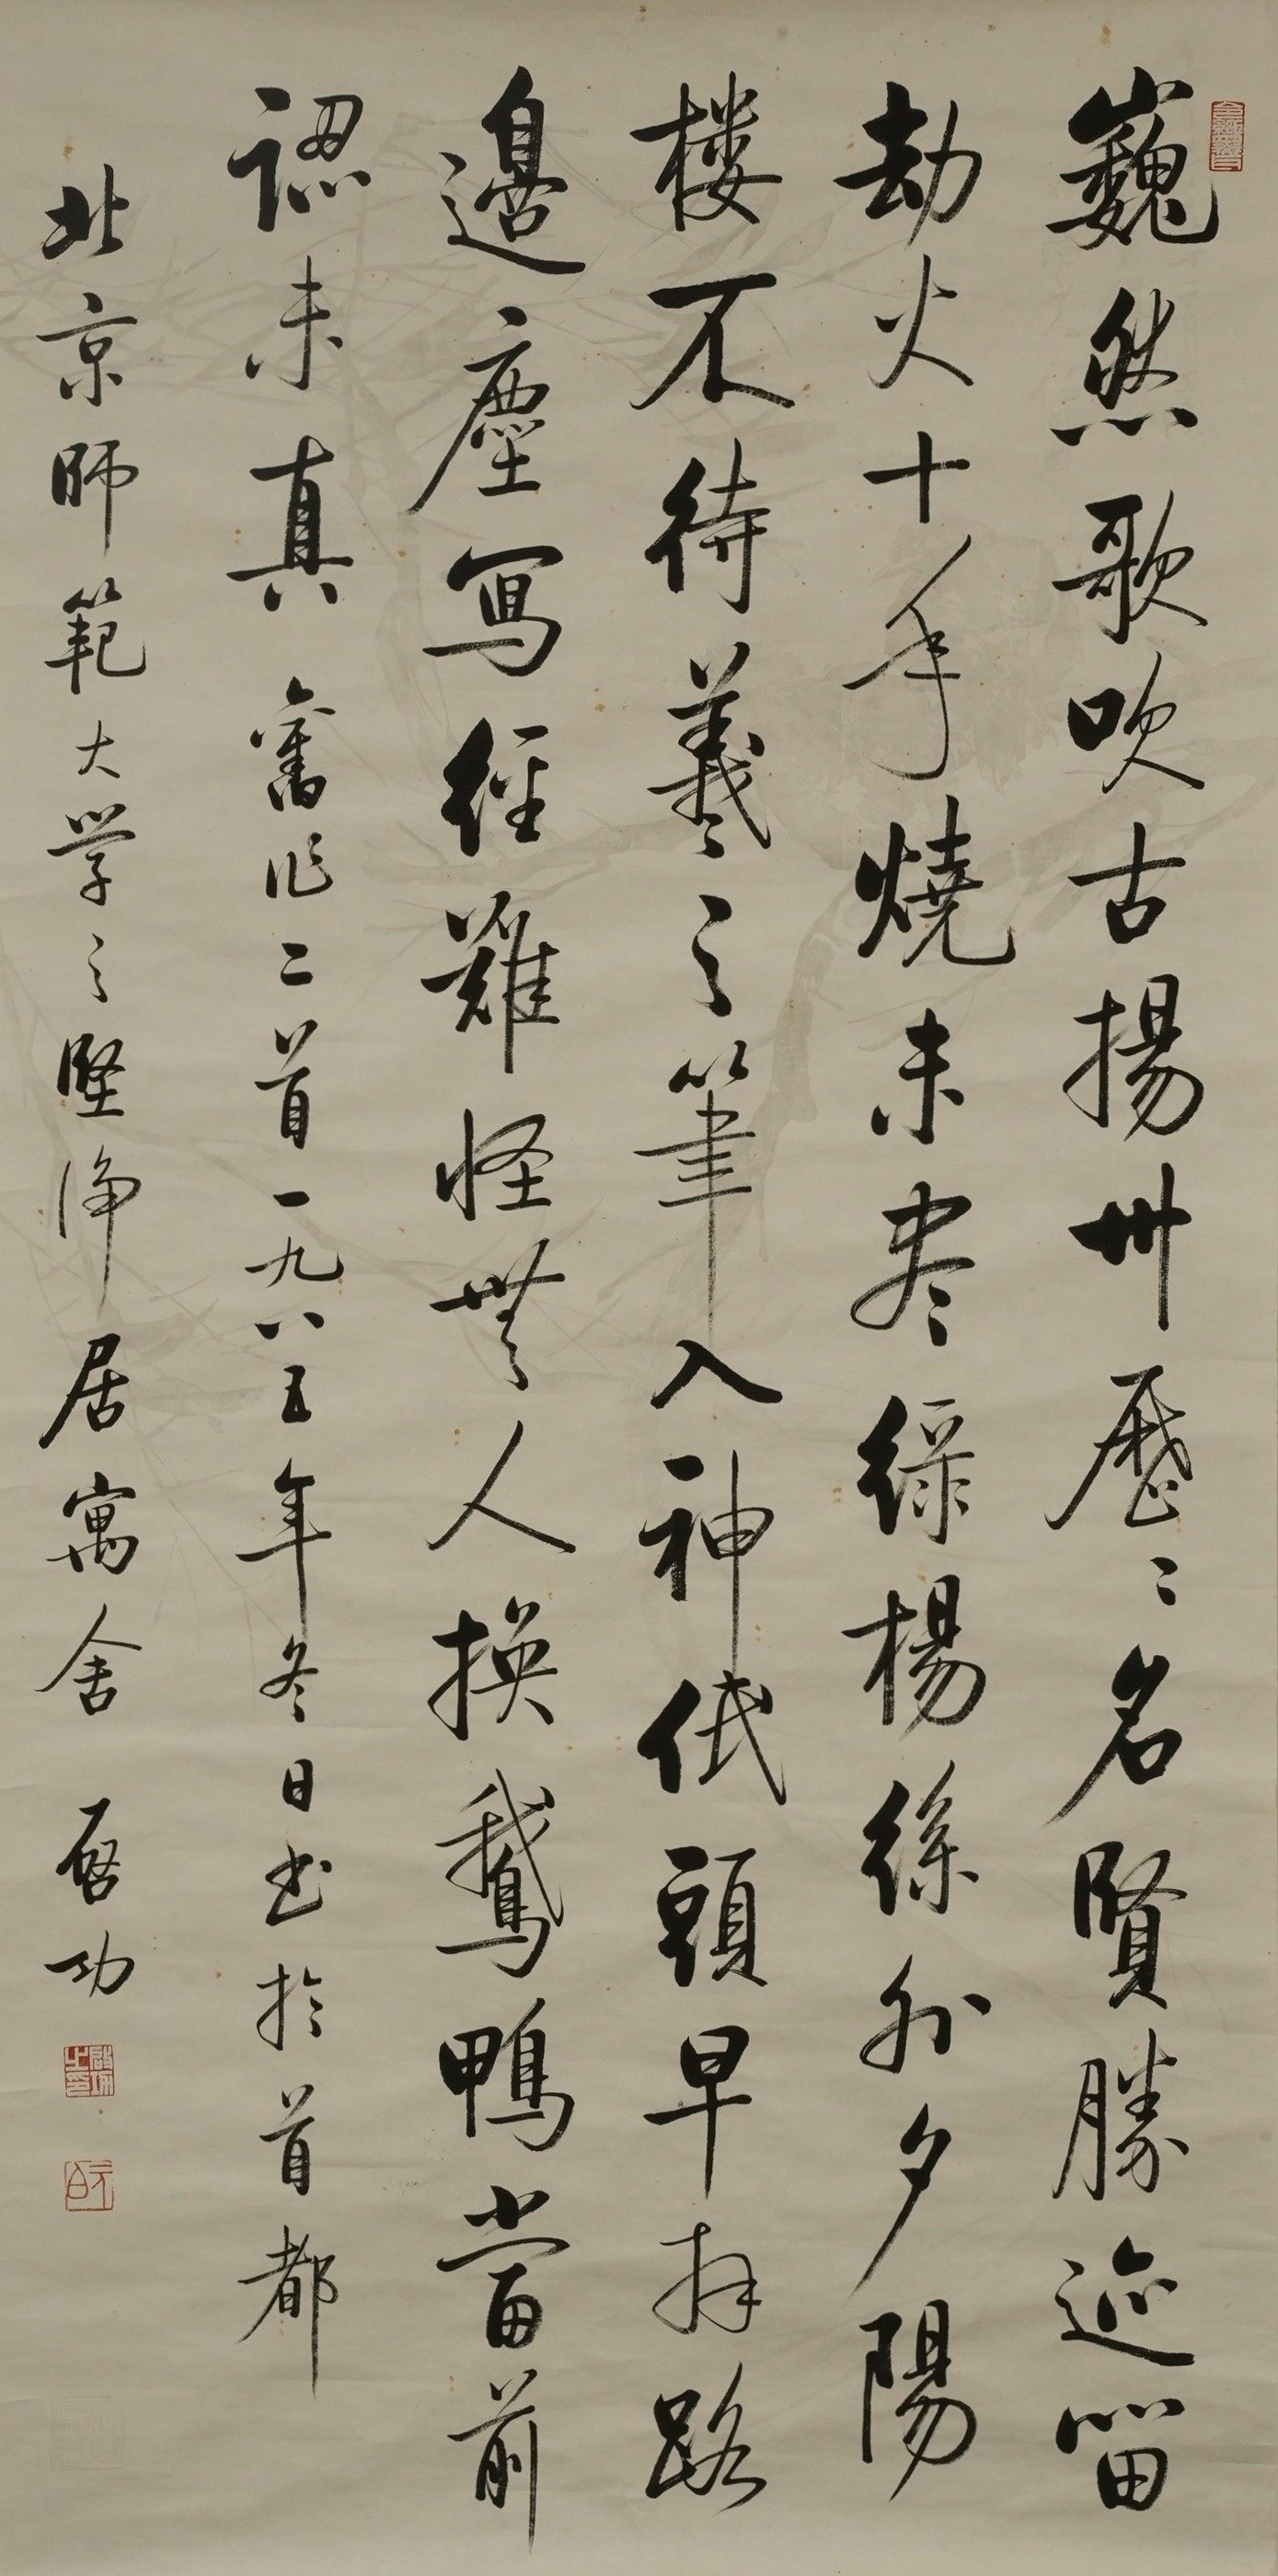 巍然歌吹古揚州歷〻名賢勝迹留
劫火十年燒未尽綠楊絲外夕陽
楼不待羲之筆入神低頭早拜路
邊塵寫經難怪無人換鵝鴨當前
認未真 舊作二首一九八五年冬日书於首都
北京師範大学之堅淨居寓舍 启功